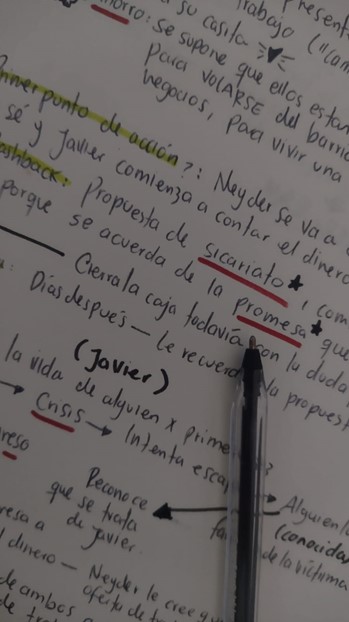 su casita
trabajo
Ahorro: se supone que ellos están
para VOLARSE del barrio
negocios, para vivir una
Primer punto de acción?: Neyder se va a
sé y Javier comienza a contar el dinero
Flashback: Propuesta de sicariato
porque se acuerda de la promesa que
Cierra la caja todavía con la duda
Días después — Le recuerda la propuest
(Javier)
la vida de alguien x prime
→ Crisis → Intenta esca
Reconoce
que se trata
de Javier.
Alguien
(conocida
de la víctima
dinero — Neyder le cree
oferta de
de ambos